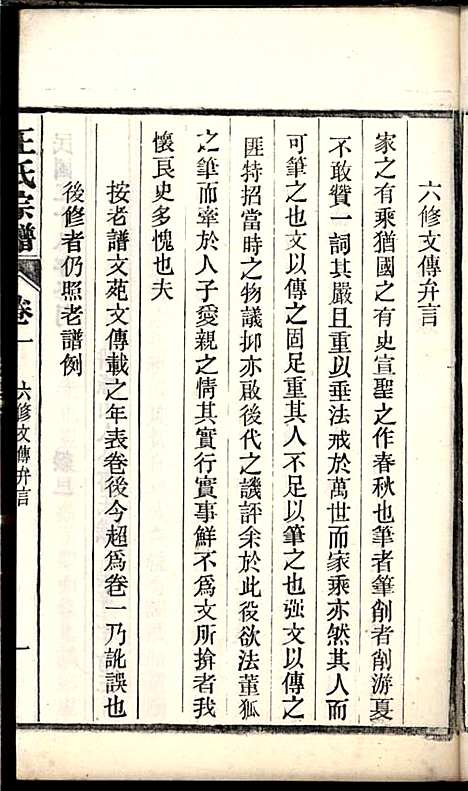 六修文傳弁言
家之有乘猶國之有史宣聖之作春秋也筆者筆削者削游夏
不敢贊一詞其嚴且重以垂法戒於萬世而家乘亦然其人而
可筆之文以傳之固足重其人不足以筆之也強文以傳之
匪特招當時之物議抑亦啟後代之譏評余於此役欲法董狐
之筆而牽於人子愛親之情其實行實事鮮不為文所揜者我
懷良史多愧也夫
按老譜文苑文傳載之年表卷後今超爲卷一乃訛誤也
後修者仍照老譜例
王氏宗譜
卷一
六修文傳弁言
一